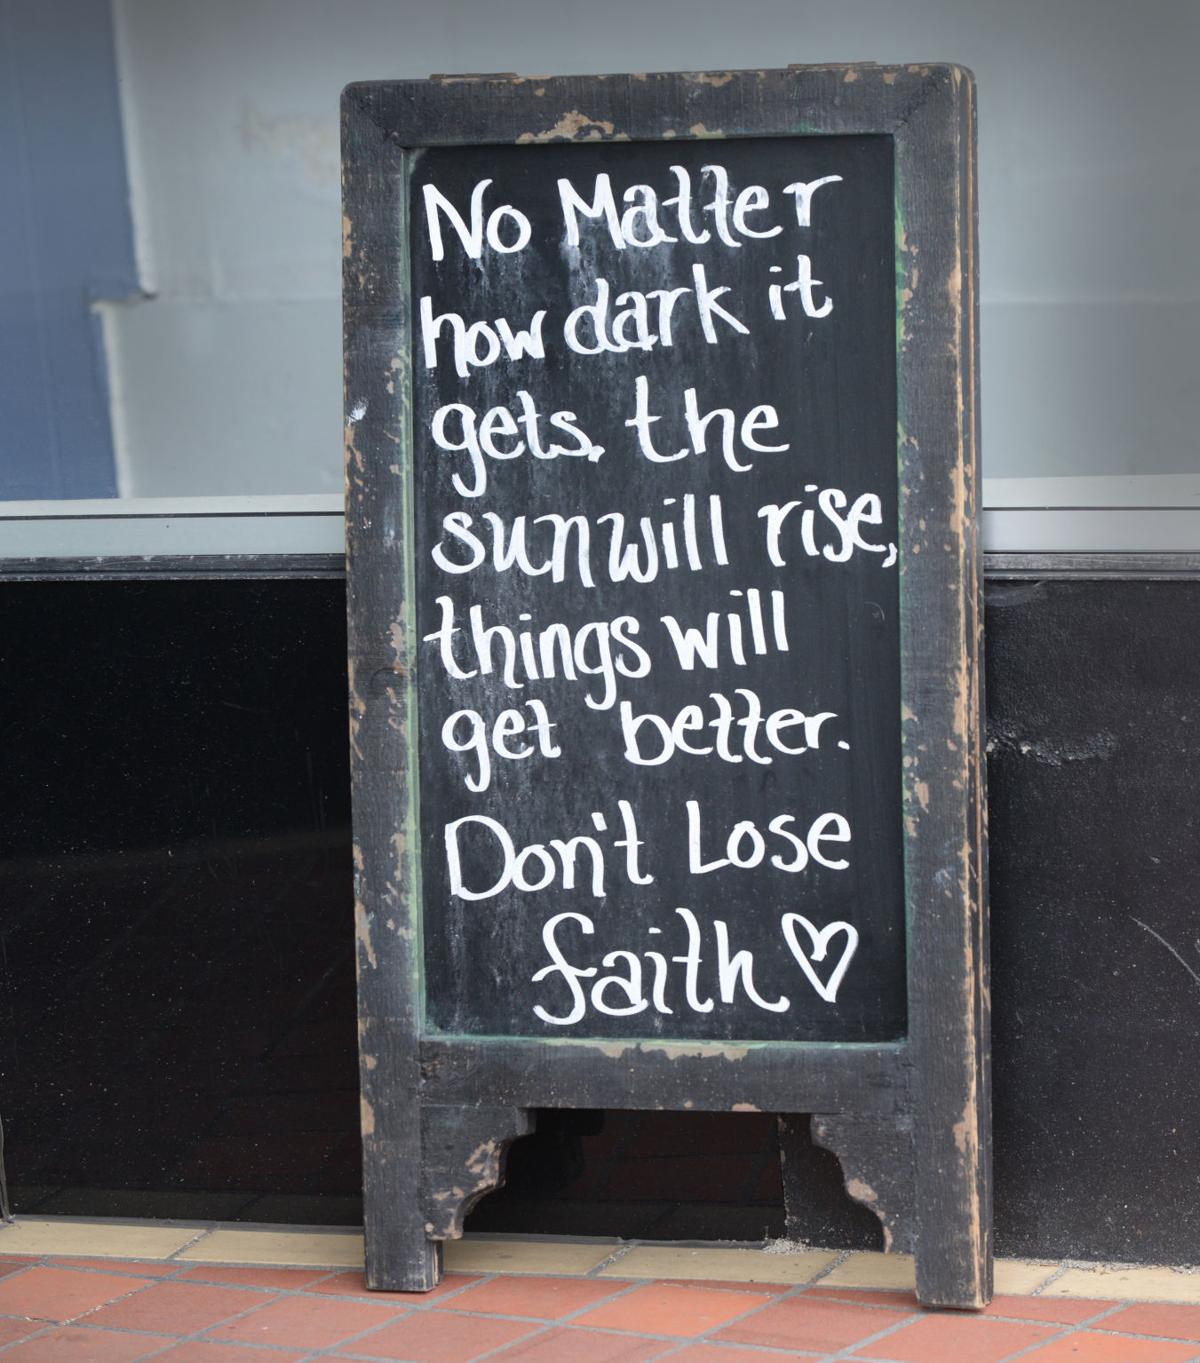 No Matter
how dark it
gets, the
sun will rise,
things will
get better.
Don't Lose
faith ♡